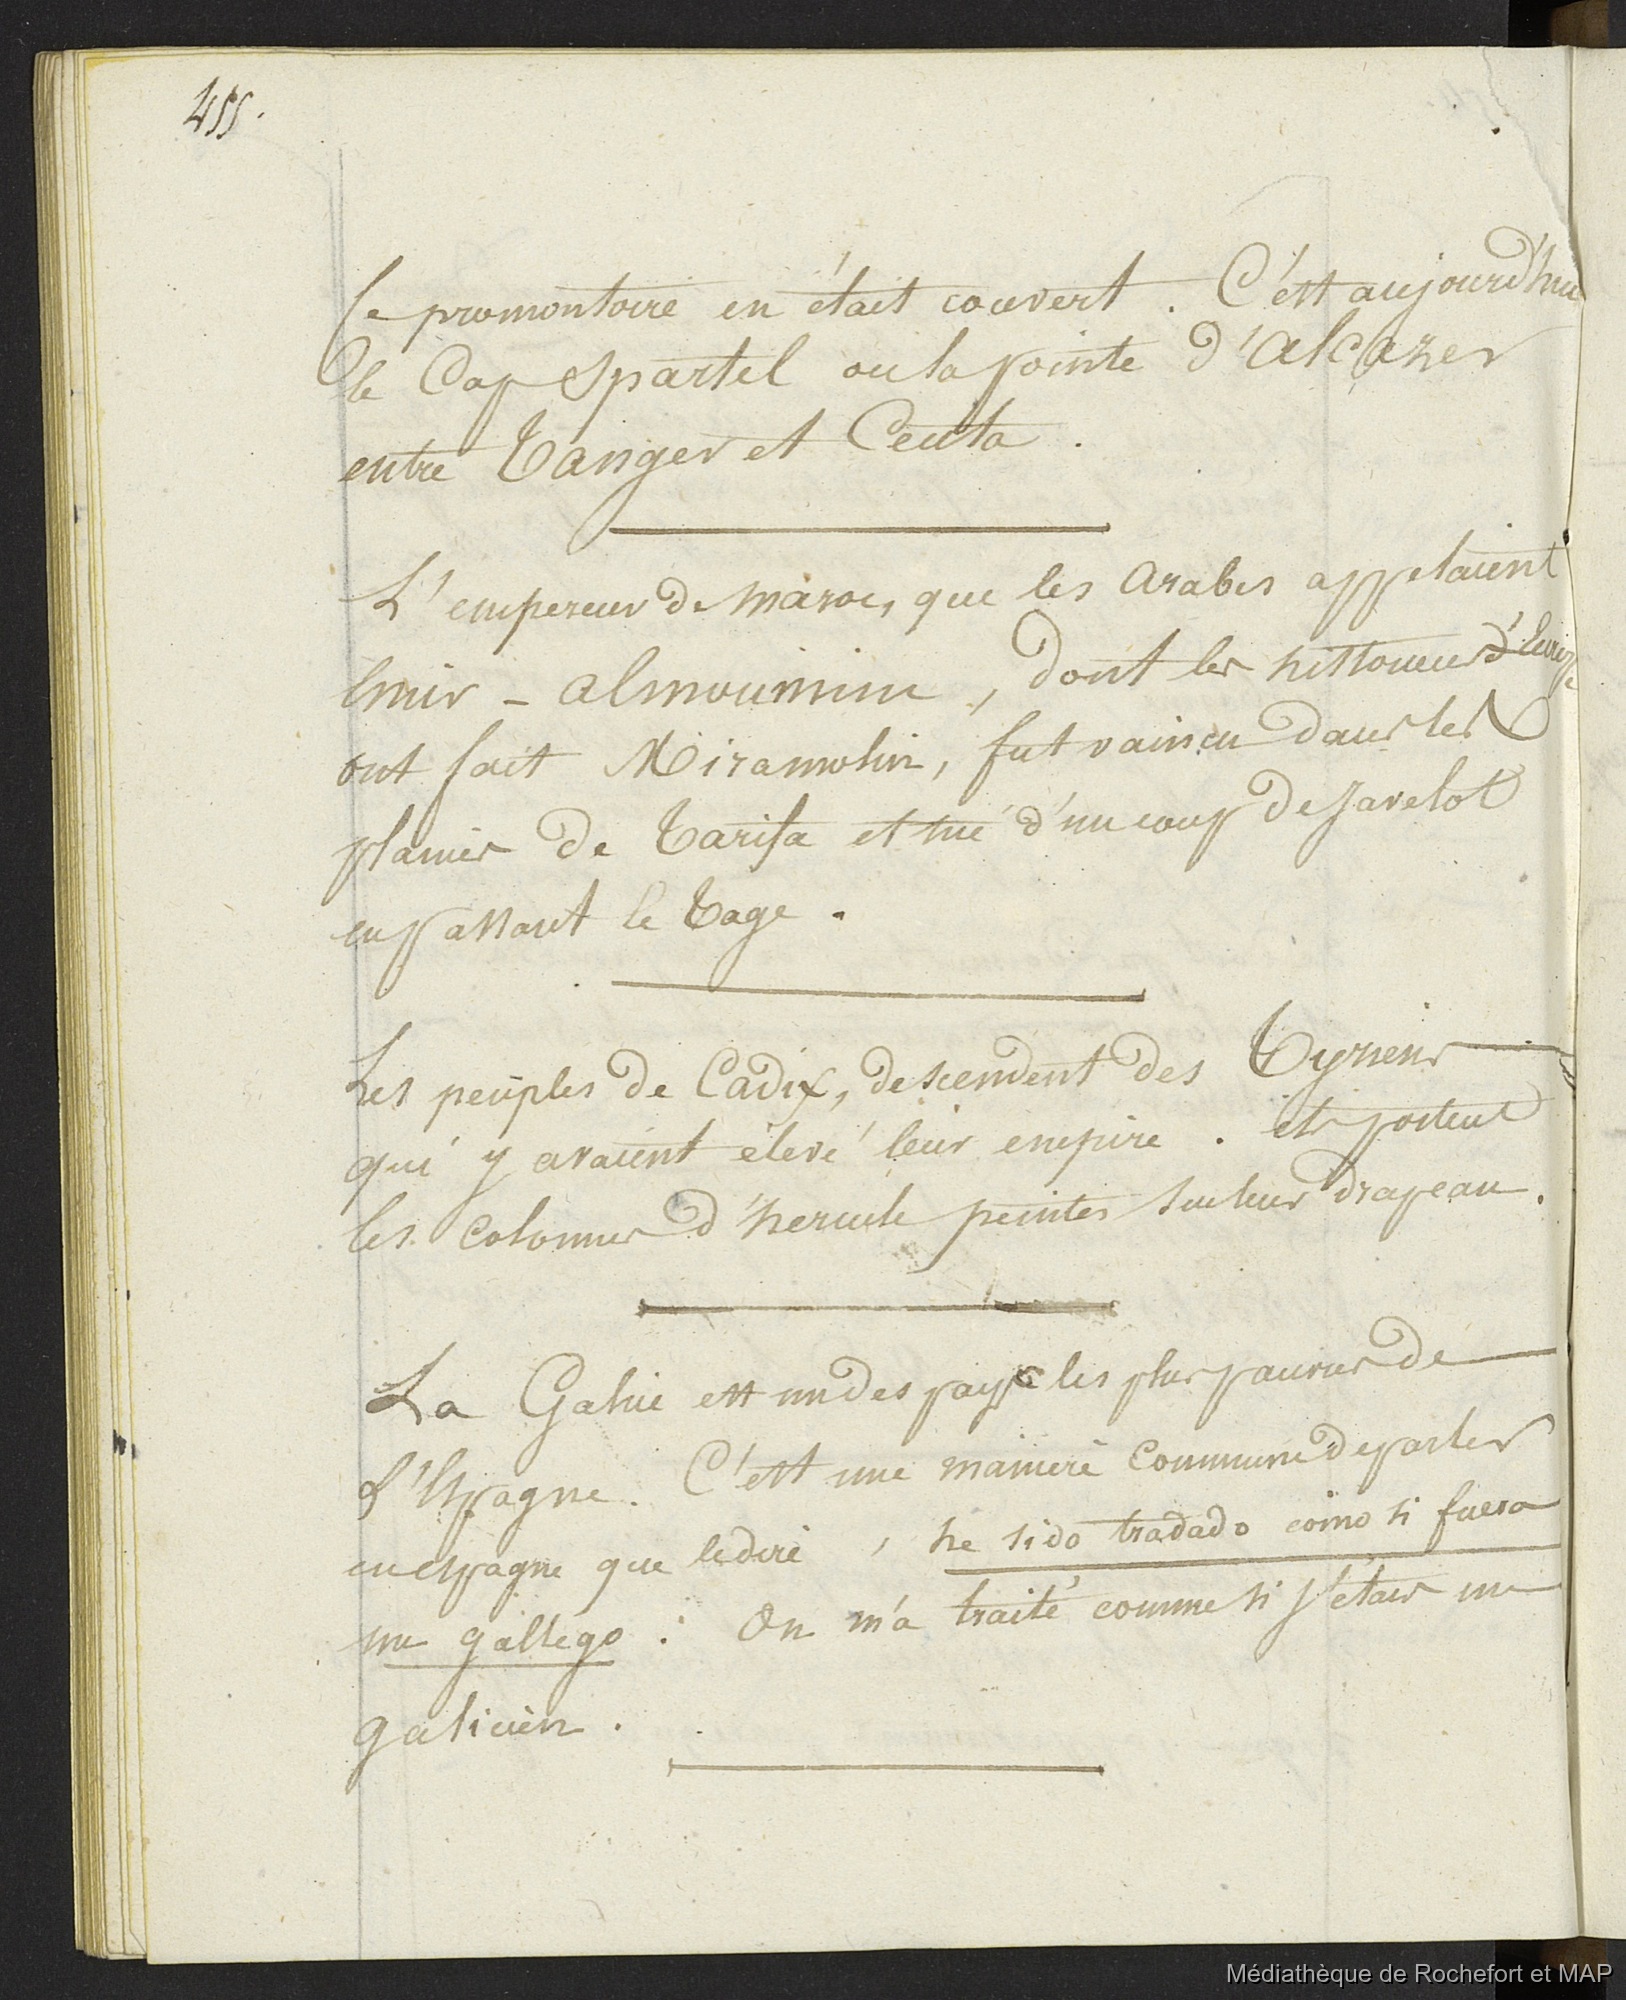 455.
Ce promontoire en était couvert. C'est aujourd'hui
le Cap Spartel ou la pointe d'Alcazer
entre Tanger et Ceuta.
L'empereur de maroc, que les Arabes appelaient
Emir - almoumim, dont les historiens d'Europe
ont fait Miramolin, fut vaincu dans les
plaines de Tarifa et tué d'un coup de javelot
en passant le Tage.
Les peuples de Cadix, descendent des Tyriens
qui y avaient élevé leur empire. ils portent
les colonnes d'hercule peintes sur leur drapeau.
La Galice est un des pays les plus pauvres de
l'Espagne. C'est une manière commune de parler
en espagne que le dire, he sido tradado como si fuera
un gallego : On m'a traité comme si j'étais un
galicien.
Médiathèque de Rochefort et MAP